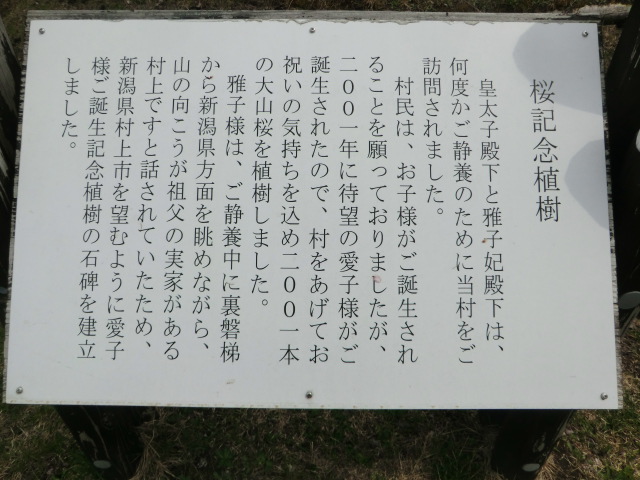 桜記念植樹
皇太子殿下と雅子妃殿下は、
何度かご静養のために当村をご
訪問されました。
村民は、お子様がご誕生され
ることを願っておりましたが、
二〇〇一年に待望の愛子様がご
誕生されたので、村をあげてお
祝いの気持ちを込め二〇〇一本
の大山桜を植樹しました。
雅子様は、ご静養中に裏磐梯
から新潟県方面を眺めながら、
山の向こうが祖父の実家がある
村上ですと話されていたため、
新潟県村上市を望むように愛子
様ご誕生記念植樹の石碑を建立
しました。